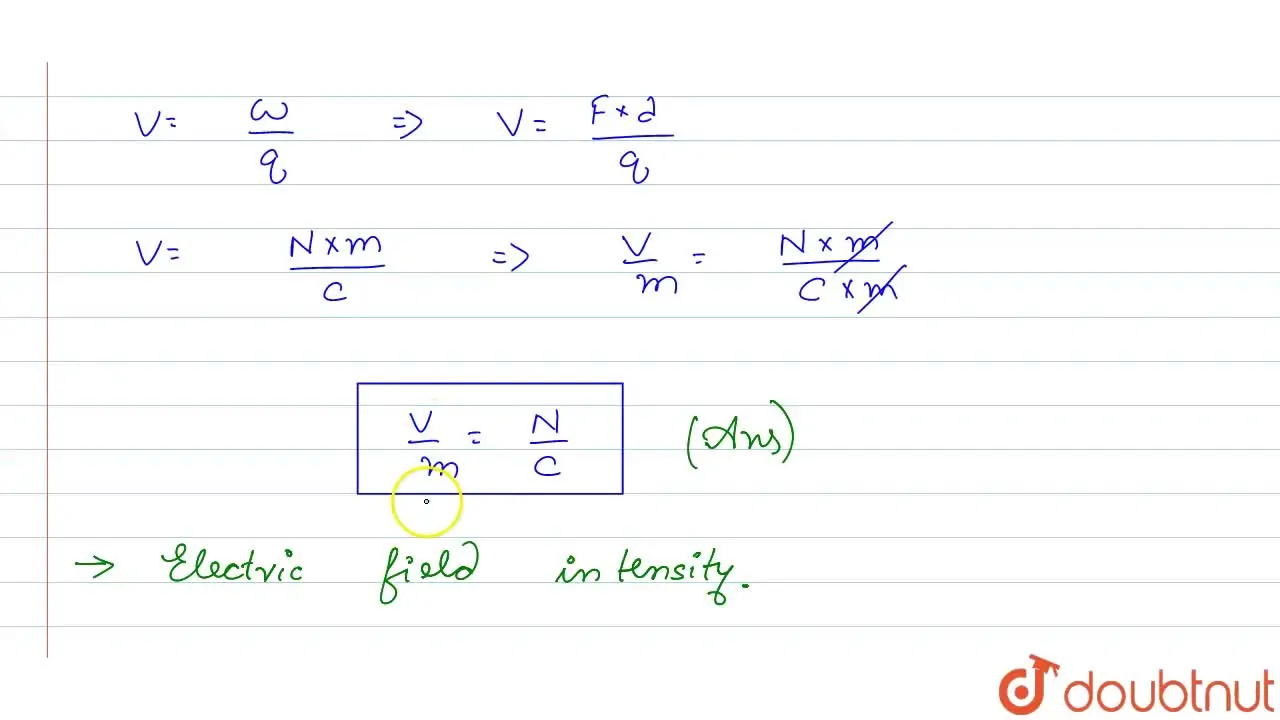 V = ω/q => V = F×d/q
V = N×m/C => V/m = N×m/C×m
V/m = N/C (Ans)
→ Electric field intensity.
doubtnut